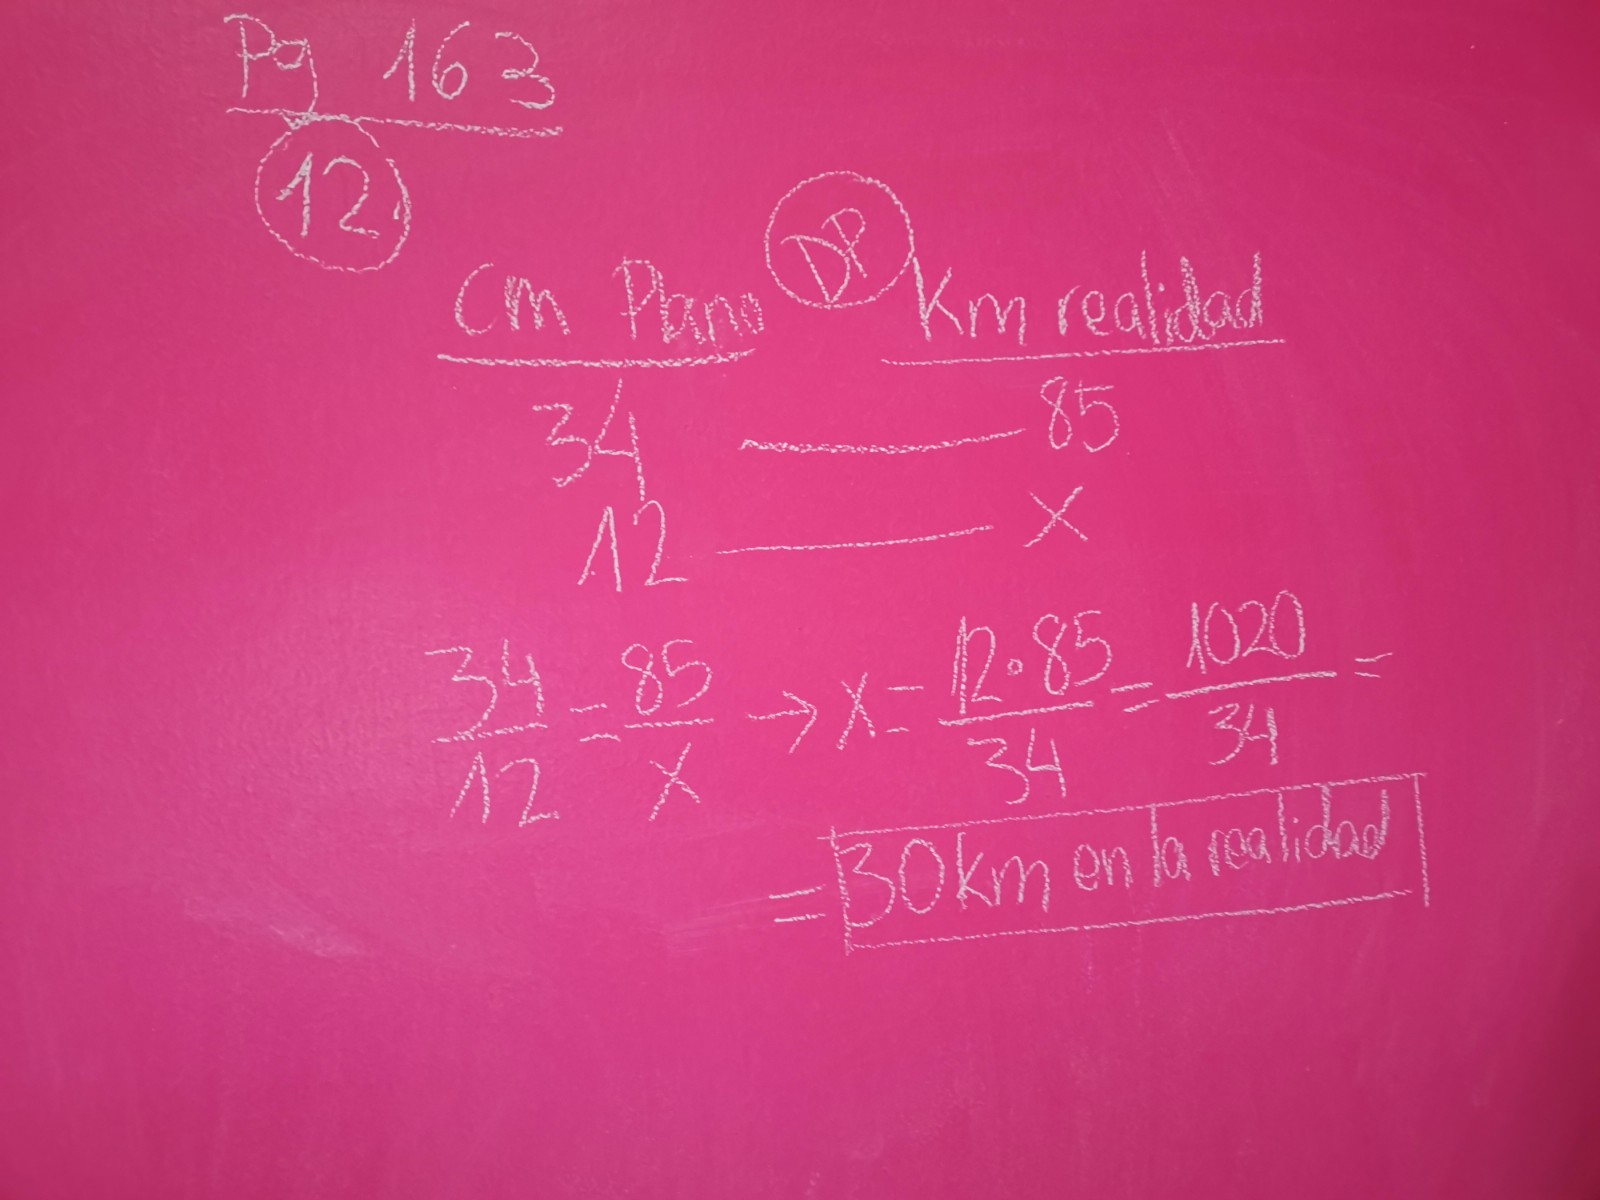 Pg 163
12.
cm Plano DP Km realidad
34 — 85
12 — x
34/12 = 85/x → x = 12·85/34 = 1020/34 =
= 30km en la realidad